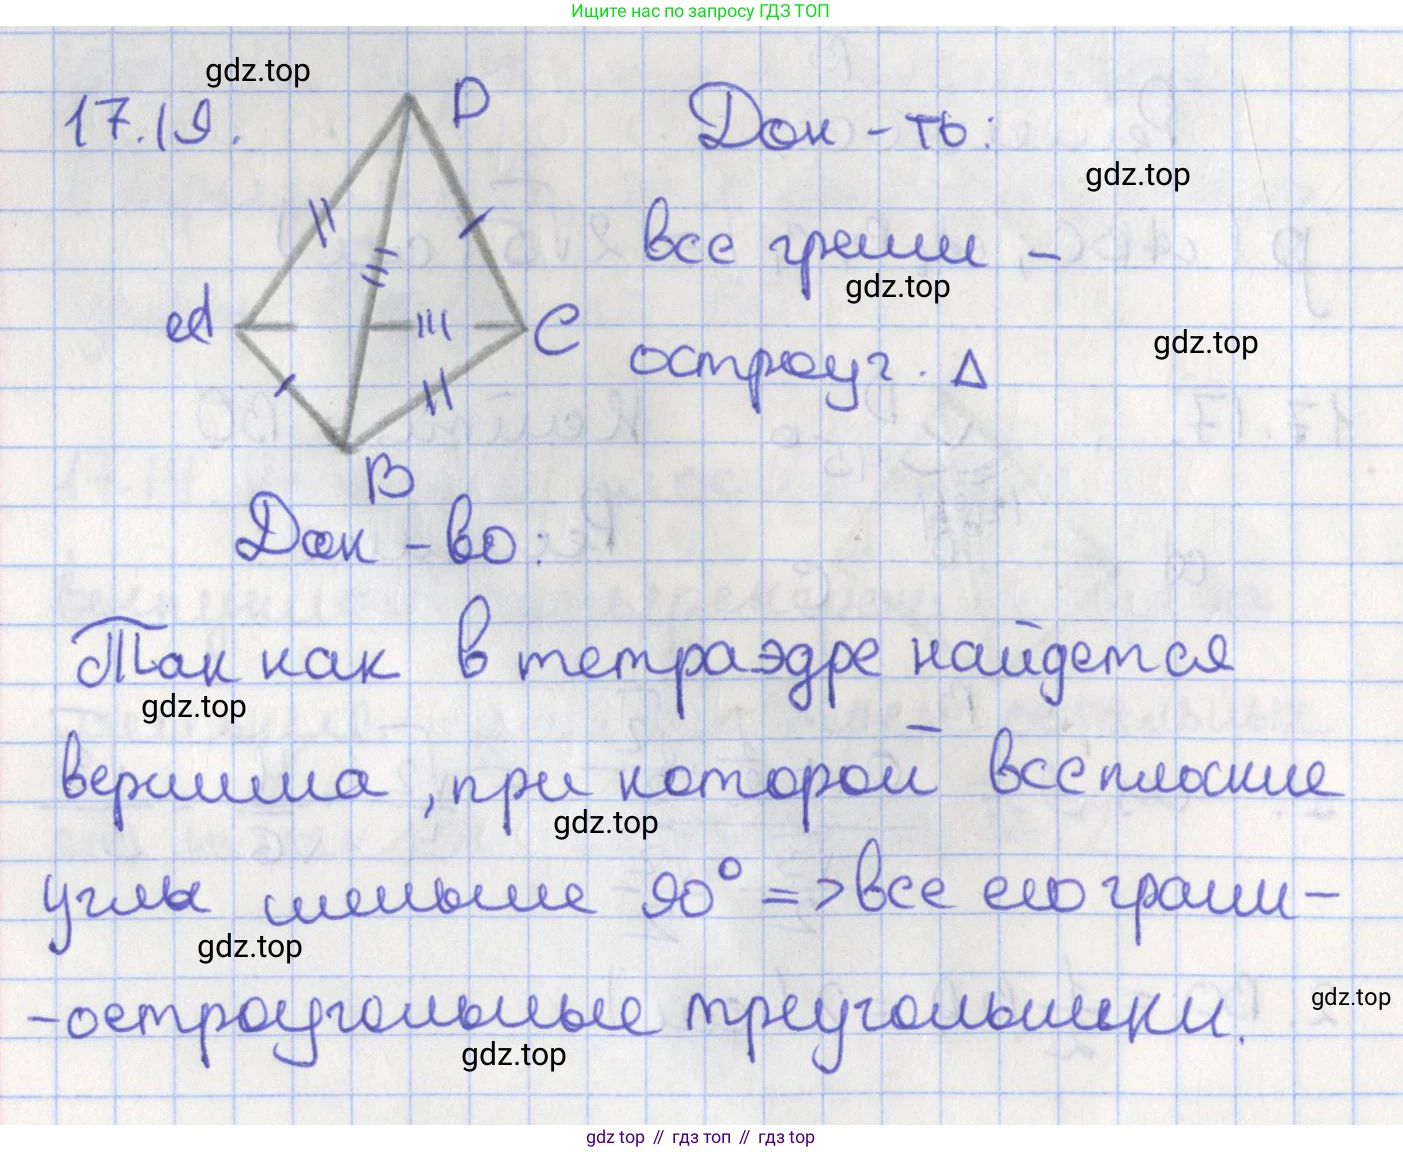 Ищите нас по запросу ГДЗ ТОП
gdz.top
17.19.
D
Док-ть:
gdz.top
все грани -
gdz.top
A
C
gdz.top
остроуг. Δ
B
Док-во:
Так как в тетраэдре найдется
gdz.top
вершина, при которой все плоские
gdz.top
углы меньше 90° => все его грани -
gdz.top
- остроугольные треугольники.
gdz.top
gdz.top
gdz top // гдз топ // гдз top